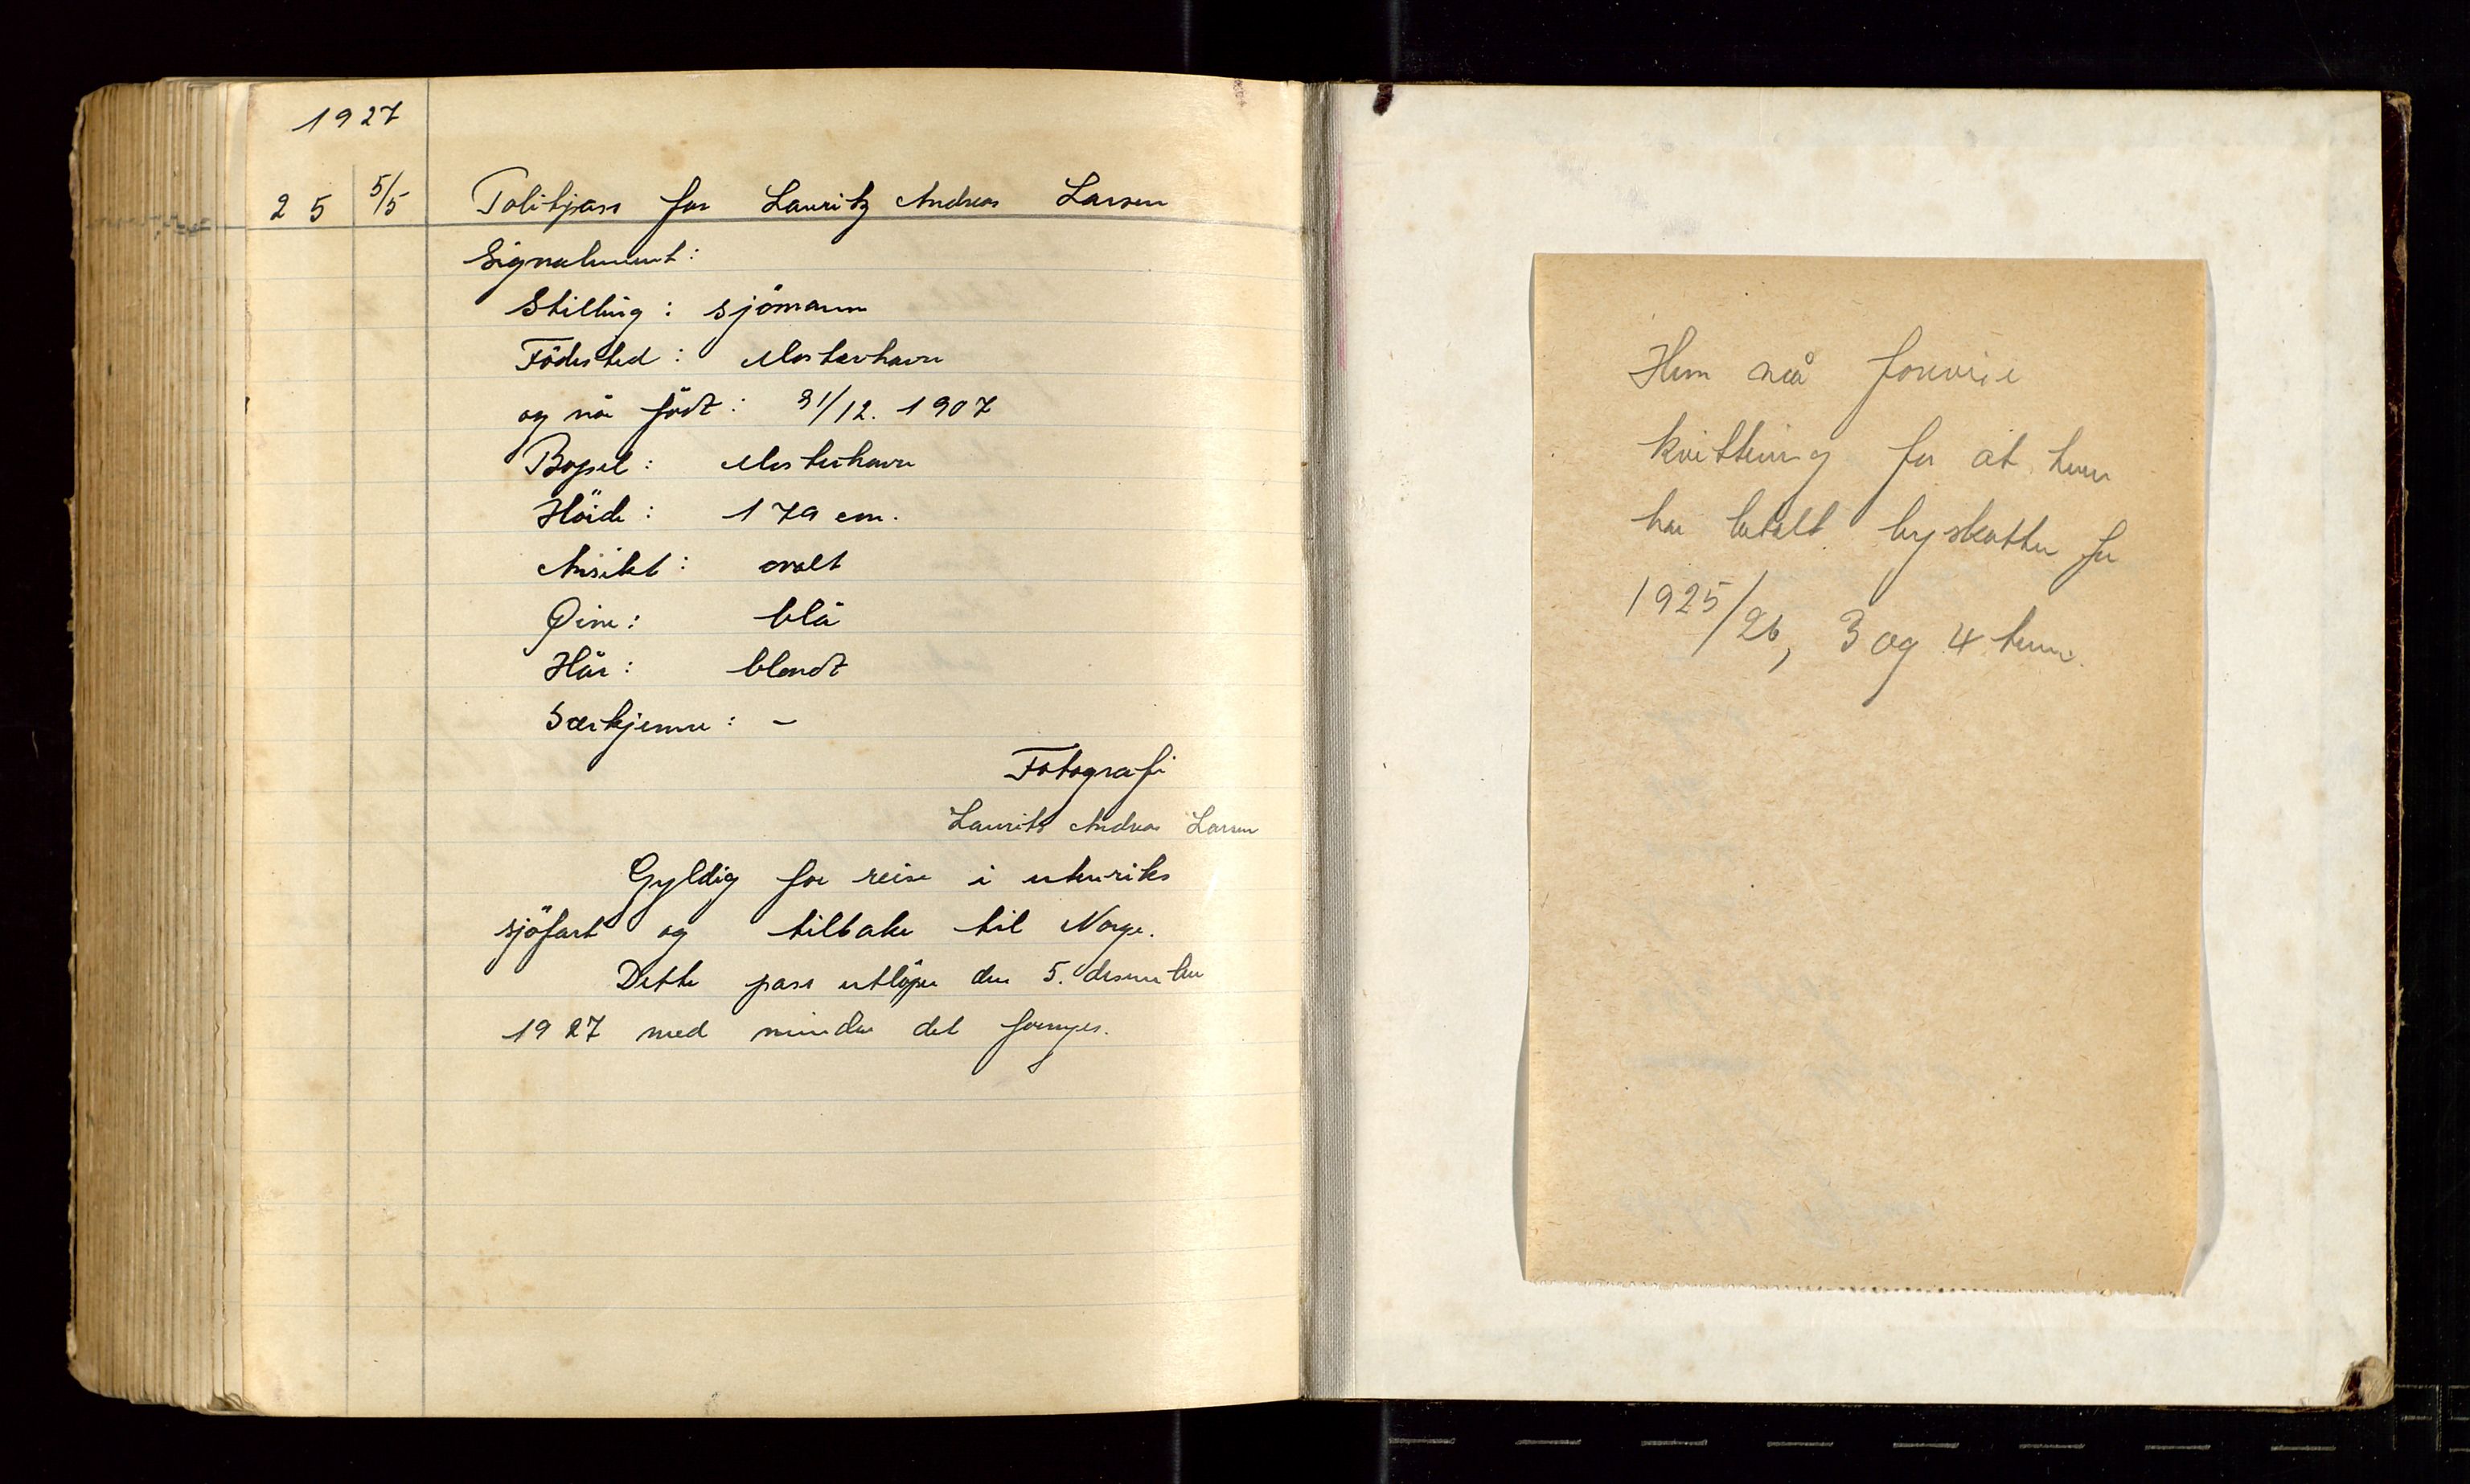 1927
25 5/5 Politipass for Lauritz Andreas Larsen
Signalement:
Stilling: sjömann
Födested: Mosterhavn
og når födt: 31/12. 1907
Bopel: Mosterhavn
Höide: 179 cm.
Ansikt: ovalt
Øine: blå
Hår: blondt
Særkjenne: –
Fotografi
Laurits Andreas Larsen
Gyldig for reise i utenriks
sjöfart og tilbake til Norge.
Dette pass utlöper den 5. desember
1927 med mindre det fornyes.
Hun må forevise
kvittering for at hun
har betalt byskatten for
1925/26, 3 og 4 term.